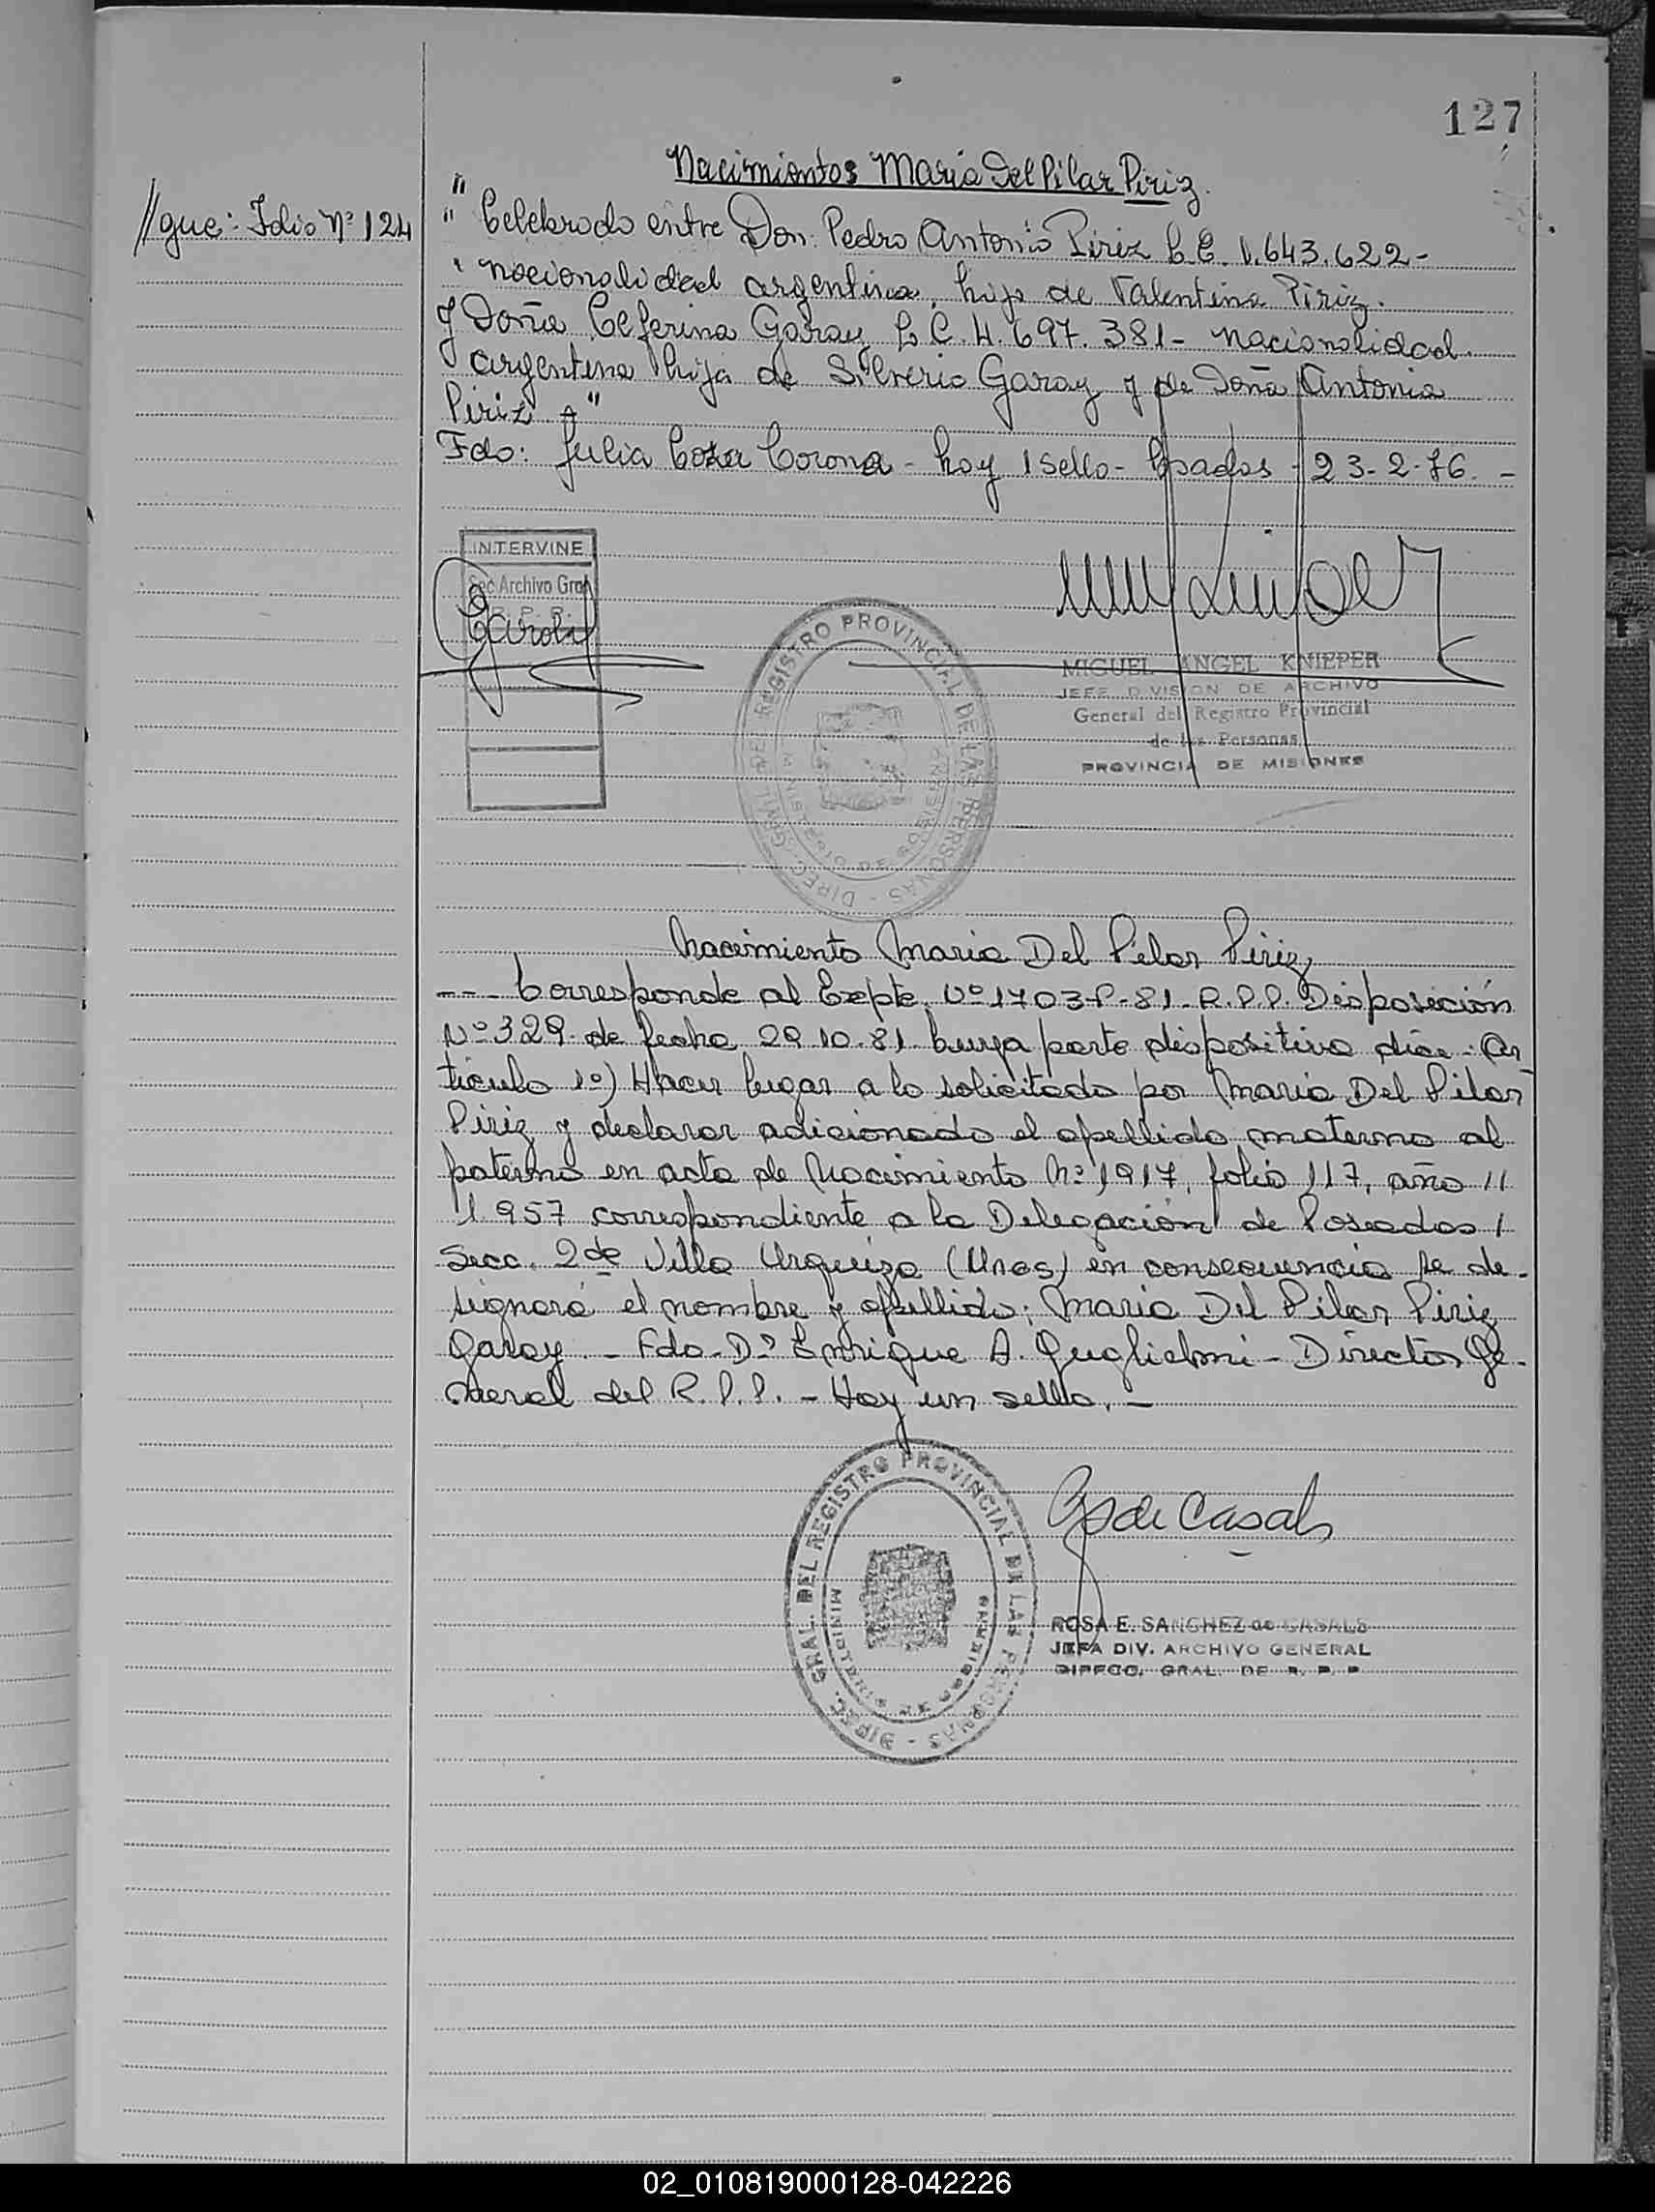 127
Nacimientos Maria Del Pilar Piriz.
//gue: Folio Nº 124
" Celebrado entre Don: Pedro Antonio Piriz L.E. 1.643.622-
" nacionalidad argentina, hijo de Valentina Piriz.
y Doña Ceferina Garay L.C. 4.697.381- nacionalidad
argentina hija de Silverio Garay y de Doña Antonia
Piriz "
Fdo: Julia Corona - hay 1 sello - Posadas - 23-2-76. -
INTERVINE
Sec Archivo Gral
R. P. P.
MIGUEL ANGEL KNIEPER
JEFE DIVISION DE ARCHIVO
General del Registro Provincial
de las Personas
PROVINCIA DE MISIONES
DIREC. GRAL. DEL REGISTRO PROVINCIAL DE LAS PERSONAS -
MINISTERIO DE GOBIERNO
Nacimiento Maria Del Pilar Piriz
--- Corresponde al Expte. Nº 1703-P-81-R.P.P. Disposición
Nº 329 de fecha 29.10.81. cuya parte dispositiva dice: Ar
ticulo 1º) Hacer lugar a lo solicitado por Maria Del Pilar
Piriz y declarar adicionado el apellido materno al
paterno en acta de Nacimiento Nº 1917, folio 117, año //
1957 correspondiente a la Delegación de Posadas /
Secc. 2da Villa Urquiza (Mnes) en consecuencia se de-
signará el nombre y apellido: Maria Del Pilar Piriz
Garay. - Fdo- Dr Enrique A. Guglielmi - Director Ge-
neral del R.P.P. - Hay un sello. -
DIREC. GRAL. DEL REGISTRO PROVINCIAL DE LAS PERSONAS -
MINISTERIO DE GOBIERNO
de Casals
ROSA E. SANCHEZ de CASALS
JEFA DIV. ARCHIVO GENERAL
DIRECC. GRAL. DE R. P. P.
02_010819000128-042226